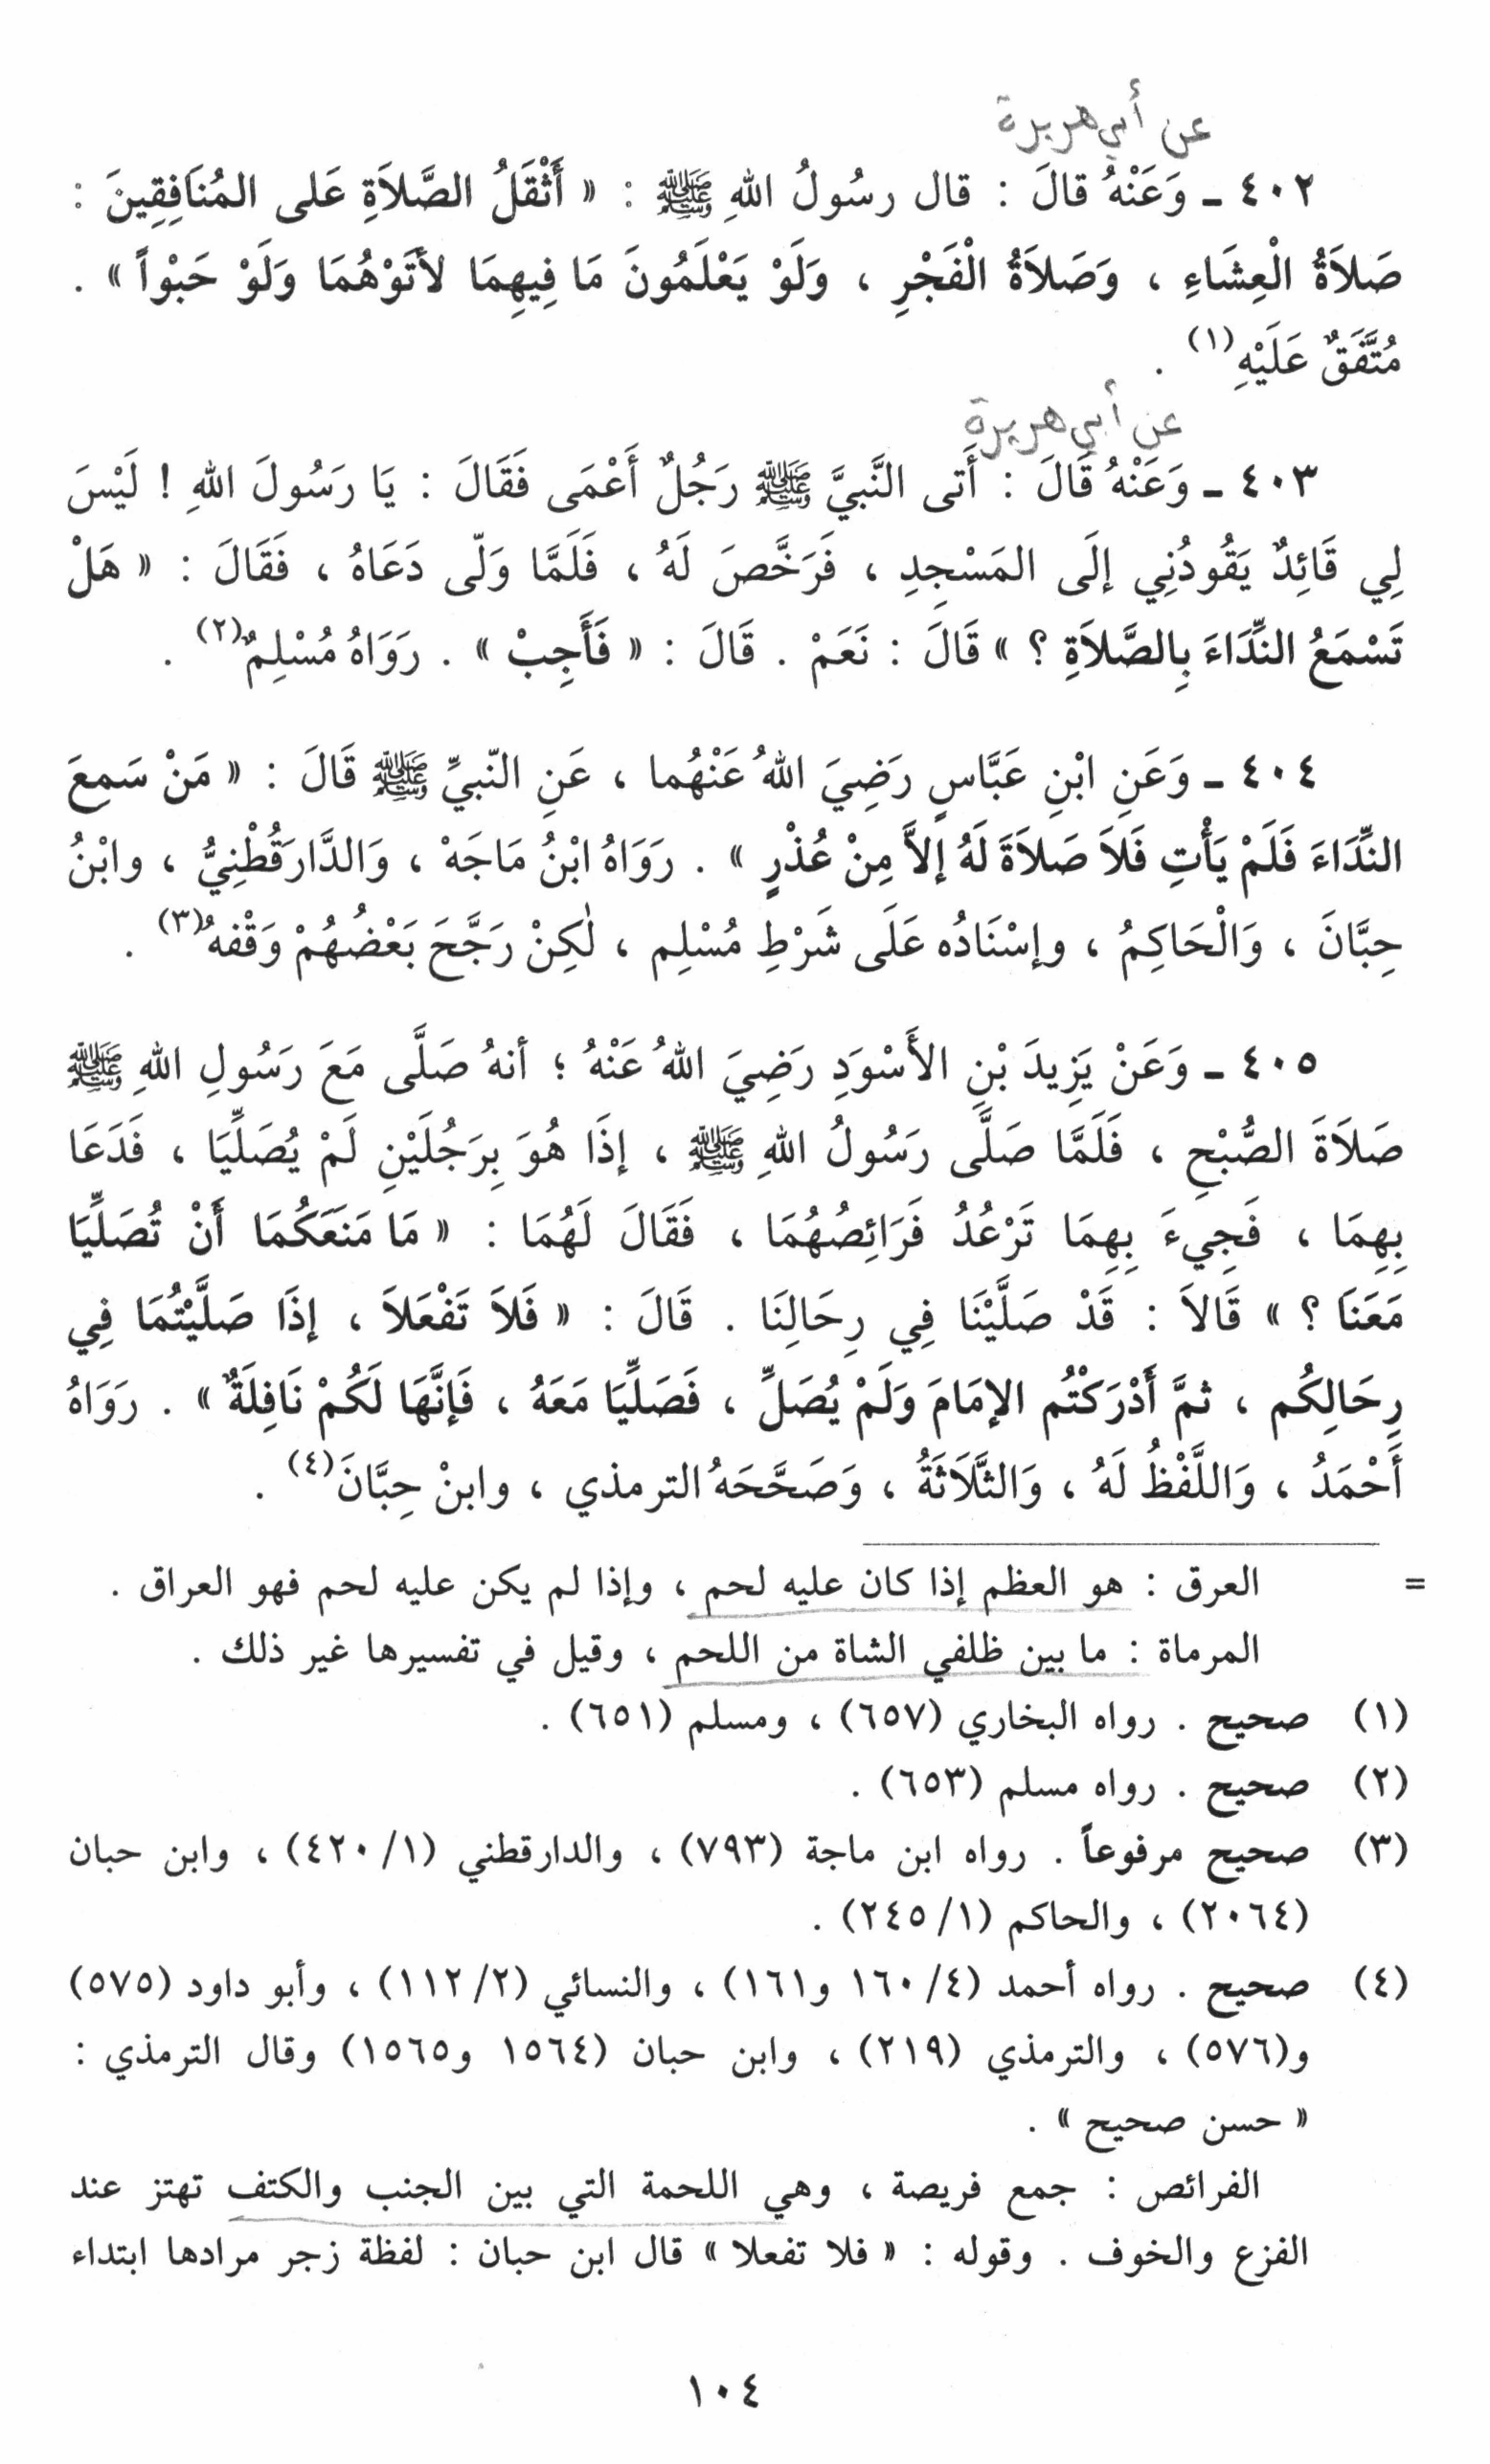 عن أبي هريرة
٤٠٢ ـ وَعَنْهُ قالَ : قال رسُولُ اللهِ ﷺ : « أَثْقَلُ الصَّلاَةِ عَلى المُنَافِقِينَ :
صَلاَةُ الْعِشَاءِ ، وَصَلاَةُ الْفَجْرِ ، وَلَوْ يَعْلَمُونَ مَا فِيهِمَا لأَتَوْهُمَا وَلَوْ حَبْواً » .
مُتَّفَقٌ عَلَيْهِ(١) .
عن أبي هريرة
٤٠٣ ـ وَعَنْهُ قَالَ : أَتى النَّبيَّ ﷺ رَجُلٌ أَعْمَى فَقَالَ : يَا رَسُولَ اللهِ ! لَيْسَ
لِي قَائِدٌ يَقُودُنِي إلَى المَسْجِدِ ، فَرَخَّصَ لَهُ ، فَلَمَّا وَلّى دَعَاهُ ، فَقَالَ : « هَلْ
تَسْمَعُ النِّدَاءَ بِالصَّلاَةِ ؟ » قَالَ : نَعَمْ . قَالَ : « فَأَجِبْ » . رَوَاهُ مُسْلِمٌ(٢) .
٤٠٤ ـ وَعَنِ ابْنِ عَبَّاسٍ رَضِيَ اللهُ عَنْهُما ، عَنِ النّبيِّ ﷺ قَالَ : « مَنْ سَمِعَ
النِّدَاءَ فَلَمْ يَأْتِ فَلاَ صَلاَةَ لَهُ إلاَّ مِنْ عُذْرٍ » . رَوَاهُ ابْنُ مَاجَهْ ، وَالدَّارَقُطْنِيُّ ، وابْنُ
حِبَّانَ ، وَالْحَاكِمُ ، وإسْنَادُه عَلَى شَرْطِ مُسْلِم ، لٰكِنْ رَجَّحَ بَعْضُهُمْ وَقْفهُ(٣) .
٤٠٥ ـ وَعَنْ يَزِيدَ بْنِ الأَسْوَدِ رَضِيَ اللهُ عَنْهُ ؛ أنهُ صَلَّى مَعَ رَسُولِ اللهِ ﷺ
صَلاَةَ الصُّبْحِ ، فَلَمَّا صَلَّى رَسُولُ اللهِ ﷺ ، إذَا هُوَ بِرَجُلَيْنِ لَمْ يُصَلِّيَا ، فَدَعَا
بِهِمَا ، فَجِيءَ بِهِمَا تَرْعُدُ فَرَائِصُهُمَا ، فَقَالَ لَهُمَا : « مَا مَنَعَكُمَا أَنْ تُصَلِّيَا
مَعَنَا ؟ » قَالاَ : قَدْ صَلَّيْنَا فِي رِحَالِنَا . قَالَ : « فَلاَ تَفْعَلاَ ، إذَا صَلَّيْتُمَا فِي
رِحَالِكُم ، ثمَّ أَدْرَكْتُم الإمَامَ وَلَمْ يُصَلِّ ، فَصَلِّيَا مَعَهُ ، فَإنَّهَا لَكُمْ نَافِلَةٌ » . رَوَاهُ
أَحْمَدُ ، وَاللَّفْظُ لَهُ ، وَالثَّلَاثَةُ ، وَصَحَّحَهُ الترمذي ، وابنْ حِبَّانَ(٤) .
= العرق : هو العظم إذا كان عليه لحم ، وإذا لم يكن عليه لحم فهو العراق .
المرماة : ما بين ظلفي الشاة من اللحم ، وقيل في تفسيرها غير ذلك .
(١) صحيح . رواه البخاري (٦٥٧) ، ومسلم (٦٥١) .
(٢) صحيح . رواه مسلم (٦٥٣) .
(٣) صحيح مرفوعاً . رواه ابن ماجة (٧٩٣) ، والدارقطني (١/ ٤٢٠) ، وابن حبان
(٢٠٦٤) ، والحاكم (١/ ٢٤٥) .
(٤) صحيح . رواه أحمد (٤/ ١٦٠ و١٦١) ، والنسائي (٢/ ١١٢) ، وأبو داود (٥٧٥)
و(٥٧٦) ، والترمذي (٢١٩) ، وابن حبان (١٥٦٤ و١٥٦٥) وقال الترمذي :
« حسن صحيح » .
الفرائص : جمع فريصة ، وهي اللحمة التي بين الجنب والكتف تهتز عند
الفزع والخوف . وقوله : « فلا تفعلا » قال ابن حبان : لفظة زجر مرادها ابتداء
١٠٤